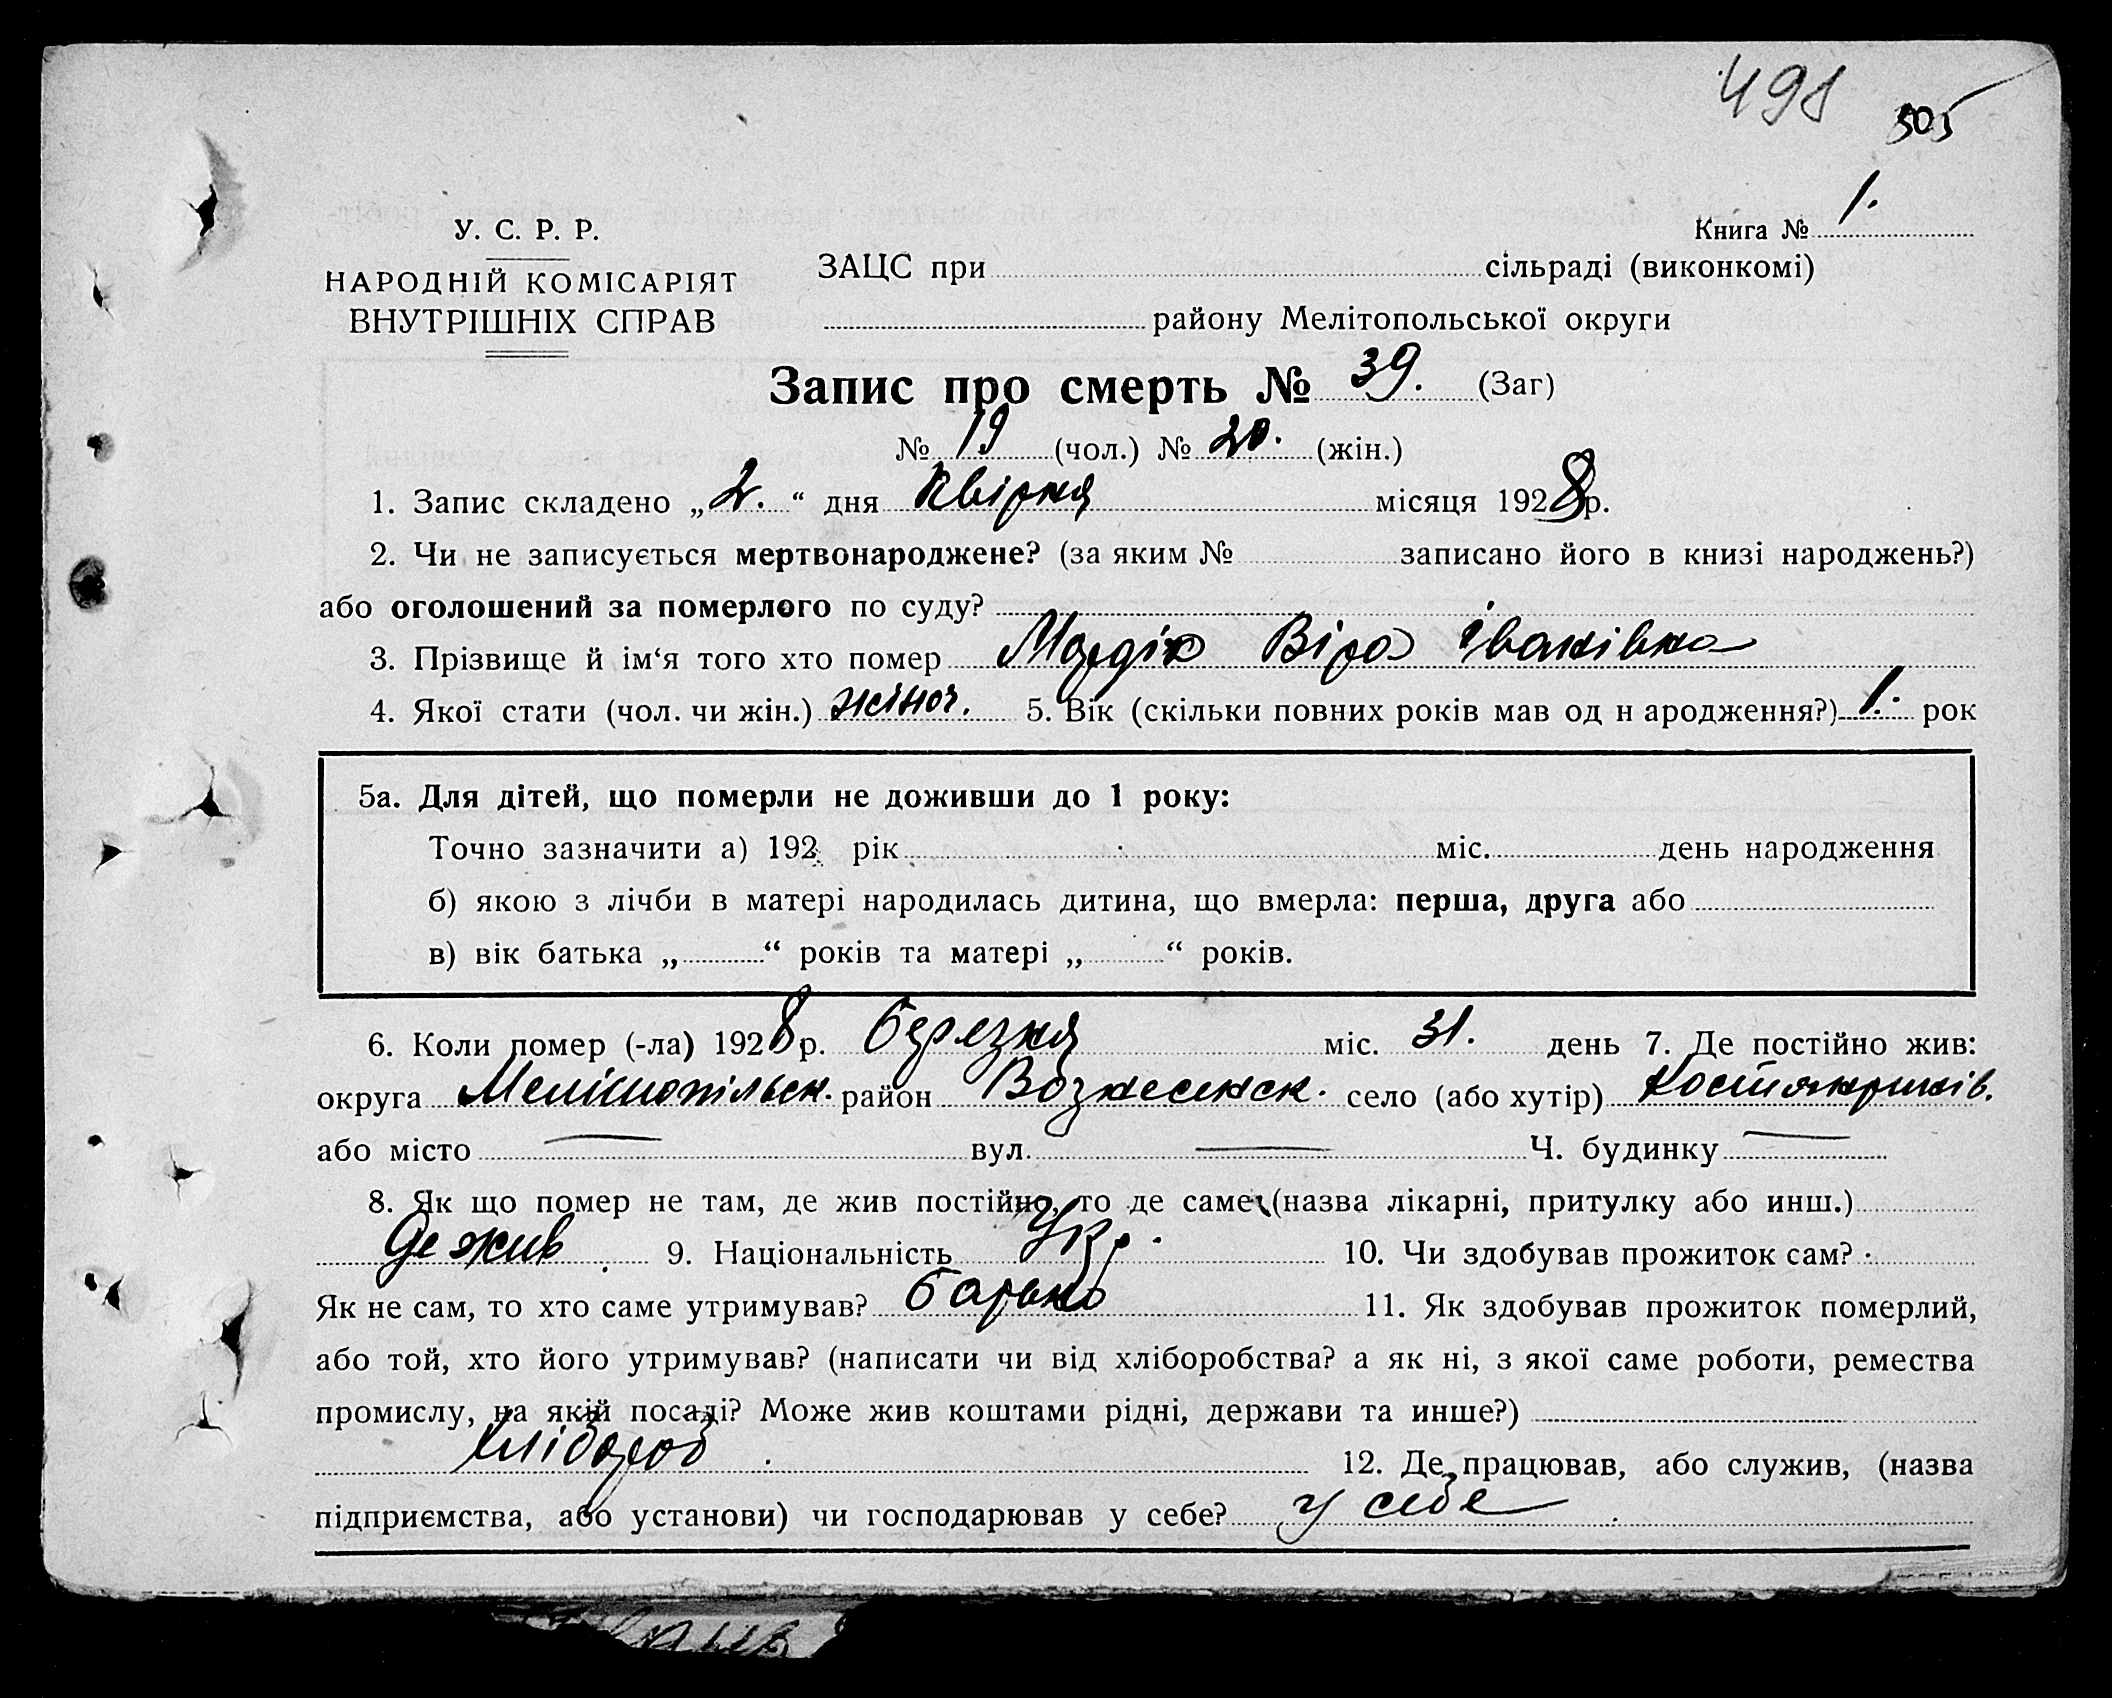 498 505
У. С. Р. Р.
Книга № 1.
НАРОДНІЙ КОМІСАРІЯТ
ВНУТРІШНІХ СПРАВ
ЗАЦС при сільраді (виконкомі)
району Мелітопольської округи
Запис про смерть № 39. (Заг)
№ 19 (чол.) № 20. (жін.)
1. Запис складено „2.“ дня Квітня місяця 1928 р.
2. Чи не записується мертвонароджене? (за яким № записано його в книзі народжень?)
або оголошений за померлого по суду?
3. Прізвище й ім‘я того хто помер Віра Іванівна
4. Якої стати (чол. чи жін.) жіноч. 5. Вік (скільки повних років мав од н ародження?) 1. рок
5а. Для дітей, що померли не доживши до 1 року:
Точно зазначити а) 192 рік міс. день народження
б) якою з лічби в матері народилась дитина, що вмерла: перша, друга або
в) вік батька „ “ років та матері „ “ років.
6. Коли помер (-ла) 1928 р. березня міс. 31. день 7. Де постійно жив:
округа Мелітопільськ. район Вознесенск. село (або хутір)
або місто — вул. — Ч. будинку —
8. Як що помер не там, де жив постійно, то де саме (назва лікарні, притулку або инш.)
де жив 9. Національність Укр. 10. Чи здобував прожиток сам?
Як не сам, то хто саме утримував? батько 11. Як здобував прожиток померлий,
або той, хто його утримував? (написати чи від хліборобства? а як ні, з якої саме роботи, ремества
промислу, на якій посаді? Може жив коштами рідні, держави та инше?)
хлібороб 12. Де працював, або служив, (назва
підприємства, або установи) чи господарював у себе? у себе